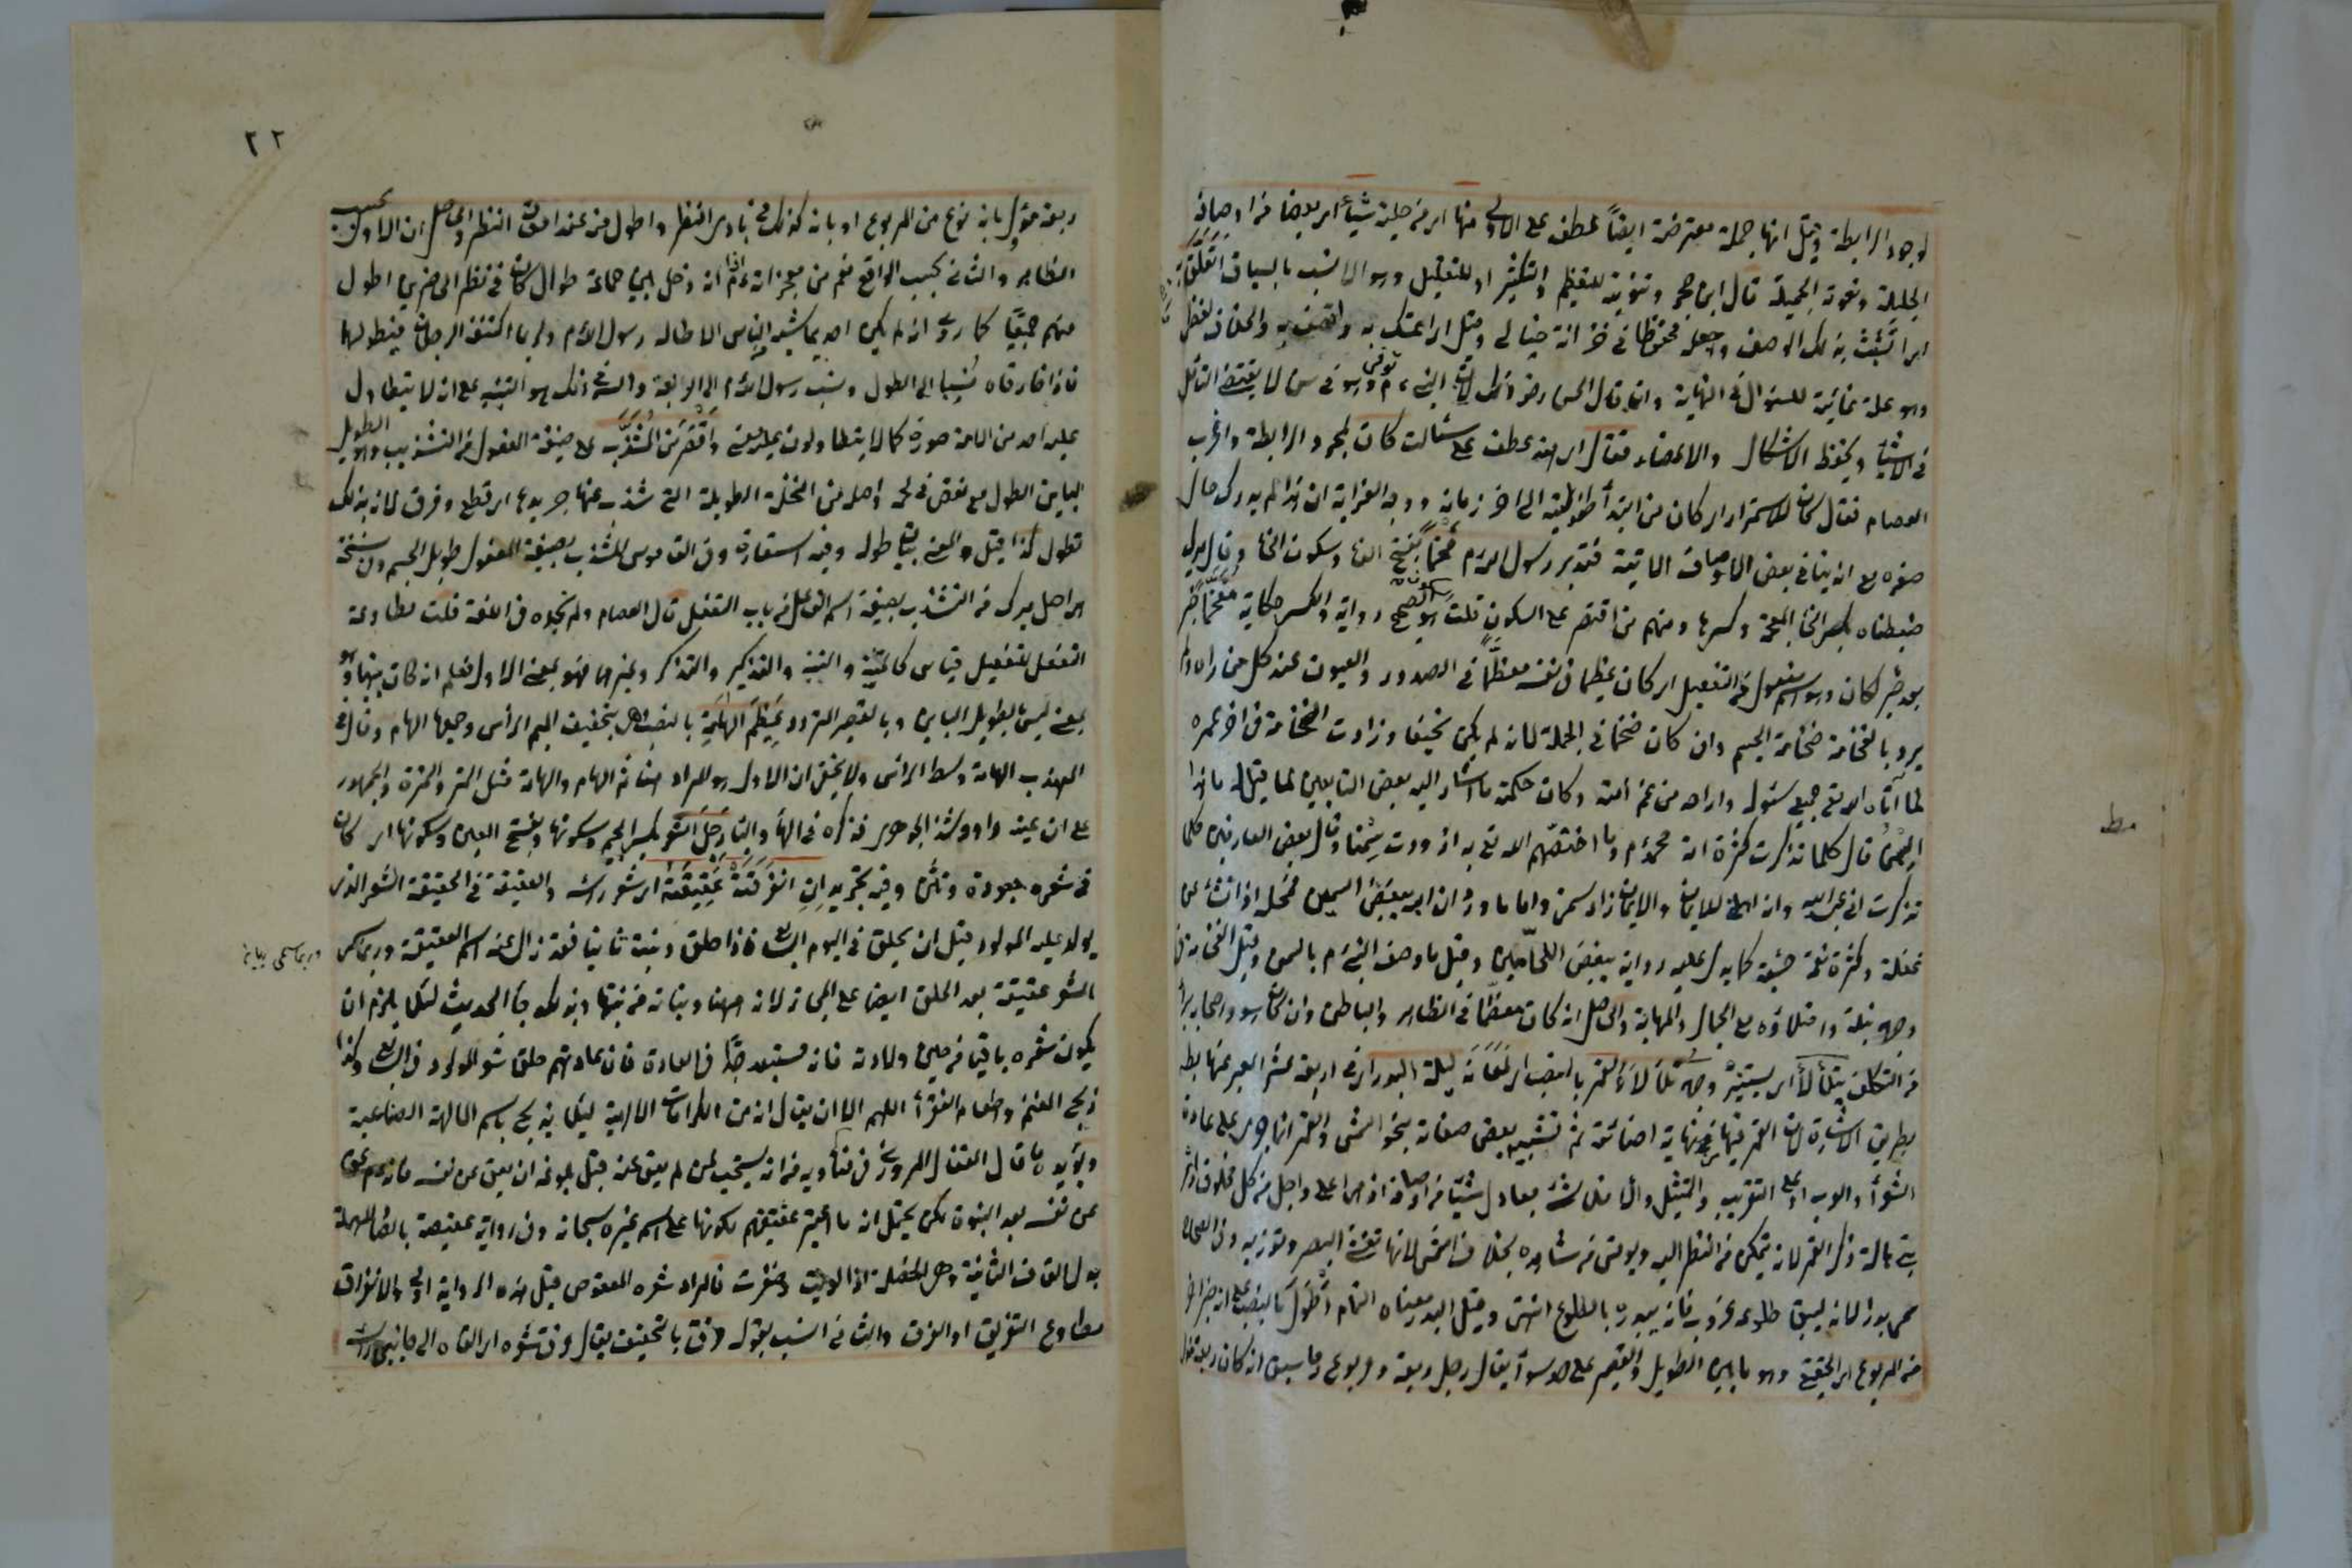 لوجود الرابطة وقيل انها جملة معترضة ايضاً عطف على الاولى منها اى من حلية شيأ اى بعضا من اوصافه
الجليلة ونعوته الجميلة قال ابن حجر وتنوينه للتعظيم والتكثير او للتقليل وهو الانسب بالسياق اتعلق به
اى اتشبث بذلك الوصف واجعله محفوظا فى خزانة خيالى وقيل اى اعمتك به واتصف به
وهو علة غائية للسؤال فى النهاية وانما قال الحسن رض ذلك لان النبى ء م توفى وهو فى سن لا يقتضى التأمل
فى الاشياء ويحفظ الاشكال والاعضاء فقال اى هند عطف على سألت كان لمجرد الرابطة واغرب
العصام فقال كان للاستمرار اى كان من ابتدأ طفوليته الى اخر زمانه ووجه الغرابة ان هذا لم يدرك حال
صغره مع انه ينافى بعض الاوصاف الاتية فتدبر رسول الله ء م فخماً بفتح الفاء وسكون الخاء
ضبطناه بكسر الخاء المعجمة وكسرها ومنهم من اقتصر على السكون قلت هو الصحيح رواية والكسر حكاية مفخماً خبر
بعد خبر لكان وهو اسم مفعول من التفعيل اى كان عظيما فى نفسه معظّماً فى الصدور والعيون عند كل من راه ولم
يرد بالفخامة ضخامة الجسم وان كان ضخما فى الجملة لانه لم يكن نحيفا وزادت الضخامة فى اخر عمره
لما آتاه الله تع جميع سؤله واراحه من غم امته وكان حكمة ما اشار اليه بعض التابعين لما قيل له ما هذا
السمن قال كلما تذكرت كثرة امة محمد ء م وما اختصهم الله تع به ازددت سمنا وقال بعض العارفين كلما
تذكرت انى عبد الله وانه اهلنى للايمان والايمان زاد سمنى واما ما ورد ان الله يبغض السمين فمحله اذا نشأ من
غفلة وكثرة نعمة حسية كما يدل عليه رواية يبغض اللحّامين وقيل ما وصف النبى ء م بالسمن وقيل الفخامة فى
وجهه نبله وامتلاؤه مع الجمال والمهابة والحاصل انه كان معظّما فى الظاهر والباطن
من التكلف يتلألأ اى يستنير وجهه تلألؤ القمر بالنصب اى لمعانه ليلة البدر اى فى اربعة عشر
بطريق الاشارة لان القمر فيها فى نهاية اضائته ثم تشبيه بعض صفاته بنحو الشمس والقمر انما جرى على عادة
الشعرأ والعرب او على التقريب والتمثيل والا فلا شئ يعادل شيئا من اوصافه اذ هى اعلى واجل من كل مخلوق
هالة ذكر القمر لانه يتمكن من النظر اليه ويؤنس من شاهده بخلاف الشمس لانها تعشى البصر وتؤذيه وفى الصحاح
سمى بدرا لانه يسبق طلوعه غروب فكانه يبدره بالطلوع انتهى وقيل البدر معناه التمام اطول بالنصب على انه خبر اخر
من المربوع اى الحقيقى وهو ما بين الطويل والقصير على حد سوآ يقال رجل ربعة ومربوع وما سبق انه كان ربعة
مط
٢٢
ربعة مؤول بانه نوع من المربوع او بانه كذلك فى بادى النظر واطول من عند امعان النظر والحاصل ان الاول بحسب
الظاهر والثانى بحسب الواقع نعم من معجزاته ء م انه اذا دخل بين جماعة طوال كان فى نظر الحاضرين اطول
منهم جميعًا كما روى انه لم يكن احد يماشيه من الناس الا طاله رسول الله ء م ولربما اكتنفه الرجلان فيطولهما
فاذا فارقاه نسبا الى الطول ونسب رسول الله ء م الى الربعة والسر فى ذلك هو التنبيه على انه لا يتطاول
عليه احد من الامة صورة كما لا يتطاولون عليه معنى واقصر من المشذّب على صيغة المفعول من التشذيب وهو الطويل
البائن الطول مع نقص فى لحمه واصله من النخلة الطويلة التى شذب عنها جريدها اى قطع وفرق لانه بذلك
تطول كذا قيل والمعنى يتبين طوله وفيه استعارة وفى القاموس المشذب بصيغة المفعول طويل الجسم وفى نسخة
اى اصل ميرك من التشذب بصيغة اسم الفاعل من باب التفعل قال العصام ولم نجده فى اللغة قلت مطاوعة
التفعل للتفعيل قياس كالتنبيه والتنبه والتذكير والتذكر وغيرها فهو بمعنى الاول فعلم انه كان بينهما
بمعنى ليس بالطويل البائن ولا بالقصير المتردد عظيم الهامة بالنصب بتخفيف الميم الرأس وجمعها الهام وقال فى
المهذب الهامة وسط الرأس ولا يخفى ان الاول هو المراد هنا ثم الهام والهامة مثل التمر والتمرة والجمهور
على ان عينه واو وشذ الجوهرى فذكره فى الهاء والياء رجل الشعر بكسر الجيم وسكونها وبفتح العين وسكونها اى كان
فى شعره جعودة وتثن وفيه تجريد ان انفرقت عقيقته اى شعر رأسه والعقيقة فى الحقيقة الشعر الذى
يولد عليه المولود قبل ان يحلق فى اليوم السابع فاذا حلق ونبت ثانيا فقد زال عنه اسم العقيقة وربما سمى
الشعر عقيقة بعد الحلق ايضا على المجاز لانه منها ونباته من نبتها وبذلك جاء الحديث لئلا يلزم ان
يكون شعره باقيا من حين ولادته فانه مستبعد جدًّا فى العادة فان عادتهم حلق شعر المولود فى السابع وكذا
ذبح الغنم واطعام الفقرأ اللهم الا ان يقال انه من الكرامات الالهية لئلا يذبح باسم الالهة الصناعية
ويؤيده ما قال القفال المروزى فى فتاويه من انه يستحب لمن لم يعق عنه قبل بلوغه ان يعق عن نفسه فانه ء م عق
عن نفسه بعد النبوة لكن يحتمل انه ما اعتبر عقيقتهم لكونها على اسم غيره سبحانه وفى رواية عقيصة بالصاد المهملة
بدل القاف الثانية وهى الخصلة اذا لويت وضفرت فالمراد شعره المعقوص قيل هذه الرواية اولى والانفراق
مطاوع التفريق او الفرق والثانى انسب بقوله فرق بالتخفيف يقال فرق شعره اى القاه الى جانبى رأسه